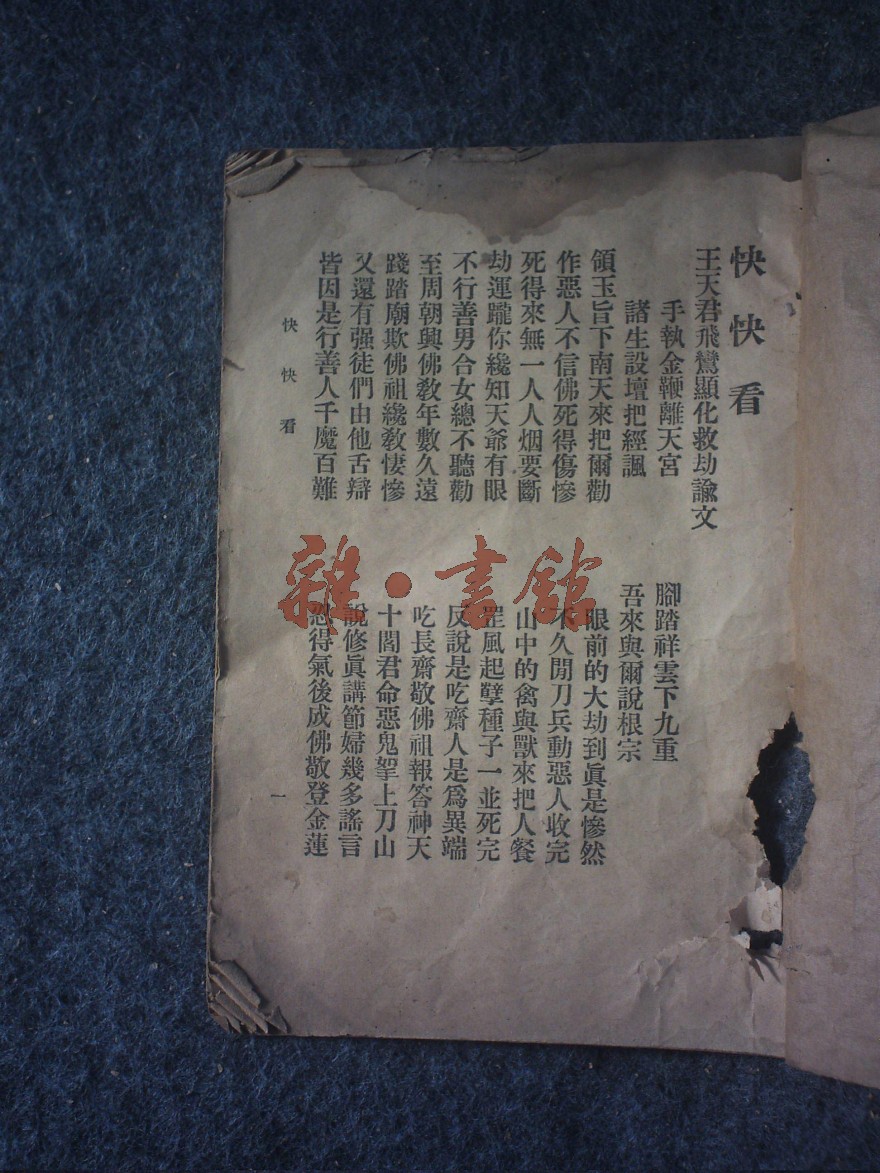 快快看
王天君飛鸞顯化救劫諭文
手執金鞭離天宮　腳踏祥雲下九重
諸生設壇把經諷　吾來與爾說根宗
領玉旨下南天來把爾勸　眼前的大劫到眞是慘然
作惡人不信佛死得傷慘　不久閒刀兵動惡人收完
死得來無一人人烟要斷　山中的禽與獸來把人餐
劫運躘你纔知天爺有眼　罡風起孽種子一並死完
不行善男合女總不聽勸　反說是吃齋人是爲異端
至周朝興佛敎年數久遠　吃長齋敬佛祖報答神天
踐踏廟欺佛祖纔敎悽慘　十閻君命惡鬼挐上刀山
又還有强徒們由他舌辯　說修眞講節婦幾多謠言
皆因是行善人千魔百難　忍得氣後成佛敬登金蓮
快快看
一
雜·書館